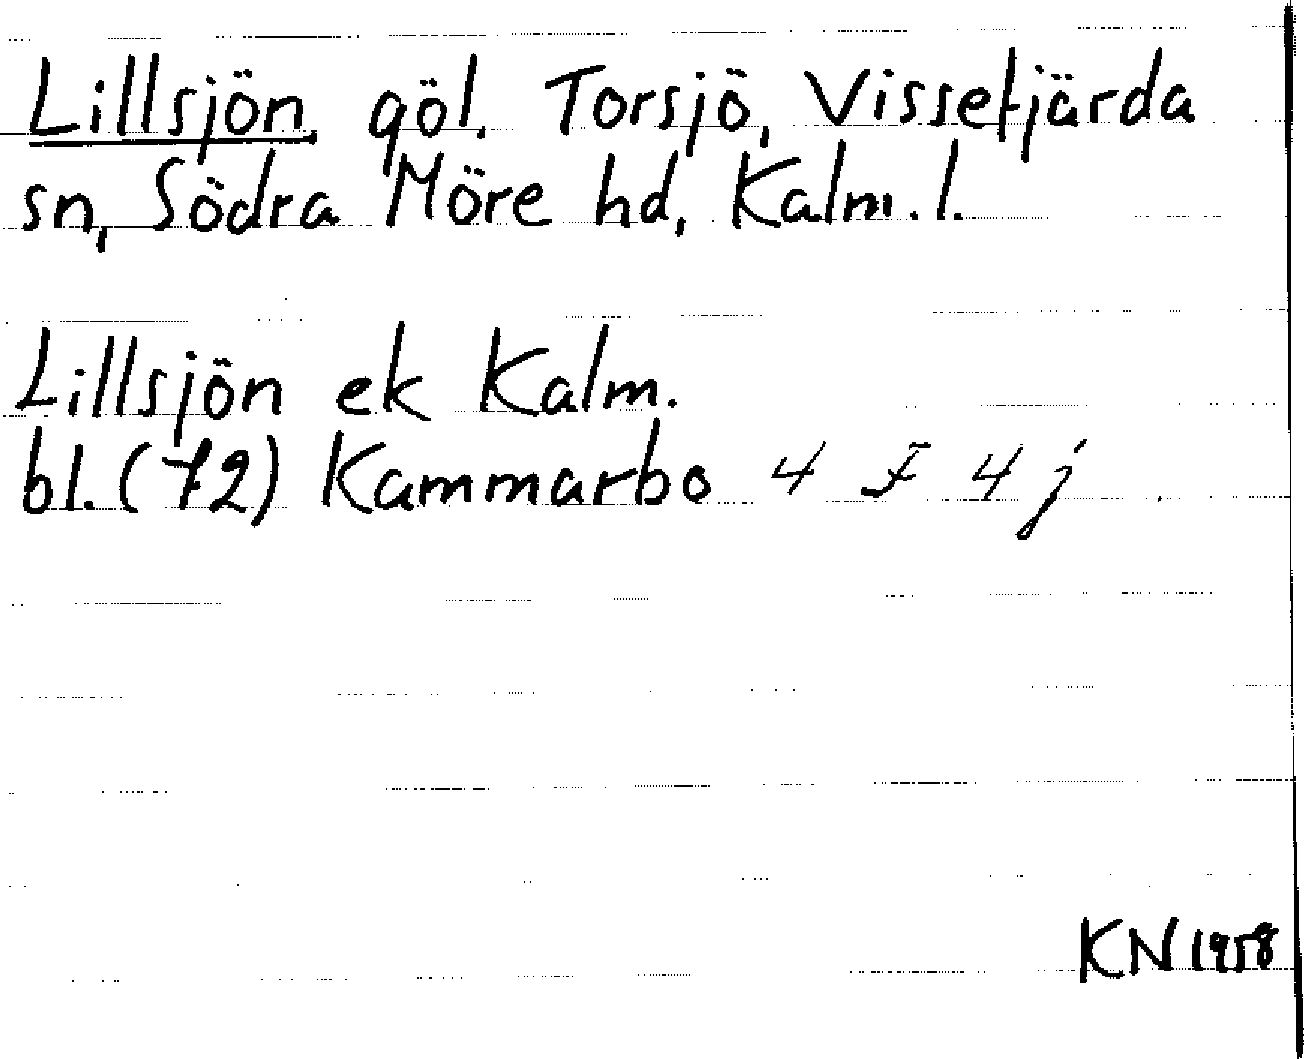 Lillsjön, göl. Torsjö, Vissefjärda
sn, Södra Möre hd, Kalm. l.
Lillsjön ek Kalm.
bl. (72) Kammarbo 4 F 4 j
KN 1958